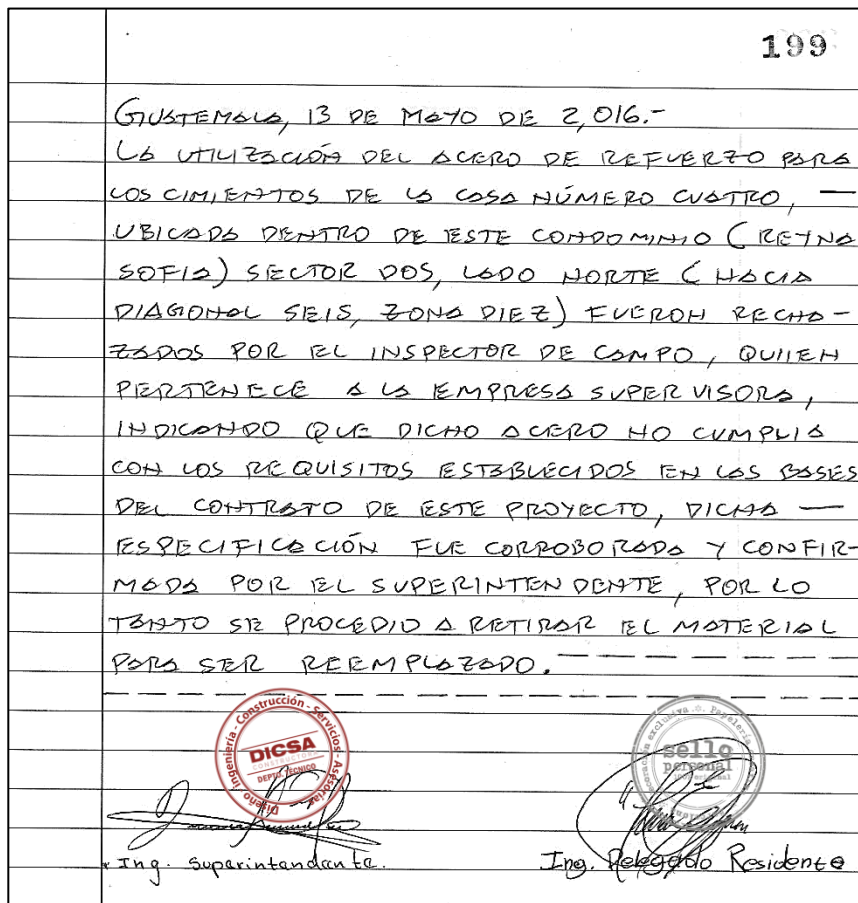 199
GUATEMALA, 13 DE MAYO DE 2,016.-
LA UTILIZACIÓN DEL ACERO DE REFUERZO PARA
LOS CIMIENTOS DE LA CASA NÚMERO CUATRO, —
UBICADA DENTRO DE ESTE CONDOMINIO (REYNA
SOFIA) SECTOR DOS, LADO NORTE (HACIA
DIAGONAL SEIS, ZONA DIEZ) FUERON RECHA-
ZADOS POR EL INSPECTOR DE CAMPO, QUIIEN
PERTENECE A LA EMPRESA SUPERVISORA,
INDICANDO QUE DICHO ACERO NO CUMPLIA
CON LOS REQUISITOS ESTABLECIDOS EN LAS BASES
DEL CONTRATO DE ESTE PROYECTO, DICHA —
ESPECIFICACIÓN FUE CORROBORADA Y CONFIR-
MADA POR EL SUPERINTENDENTE, POR LO
TANTO SE PROCEDIO A RETIRAR EL MATERIAL
PARA SER REEMPLAZADO.
Diseño - Ingeniería - Construcción - Servicios - Asesorías
DICSA
CONSTRUCTORA
DEPTO. TECNICO
sello
personal
Ing. Superintendente.
Ing. Delegado Residente